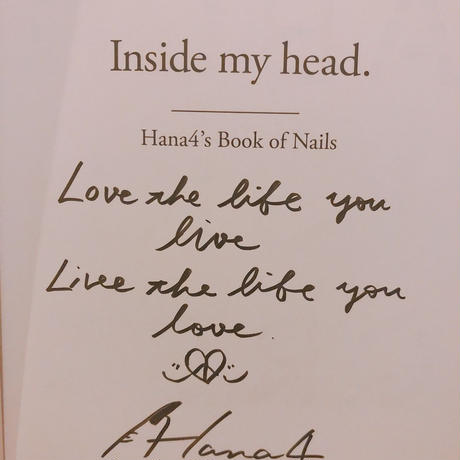 Inside my head.
Hana4's Book of Nails
Love the life you
live
Live the life you
love.
Hana4